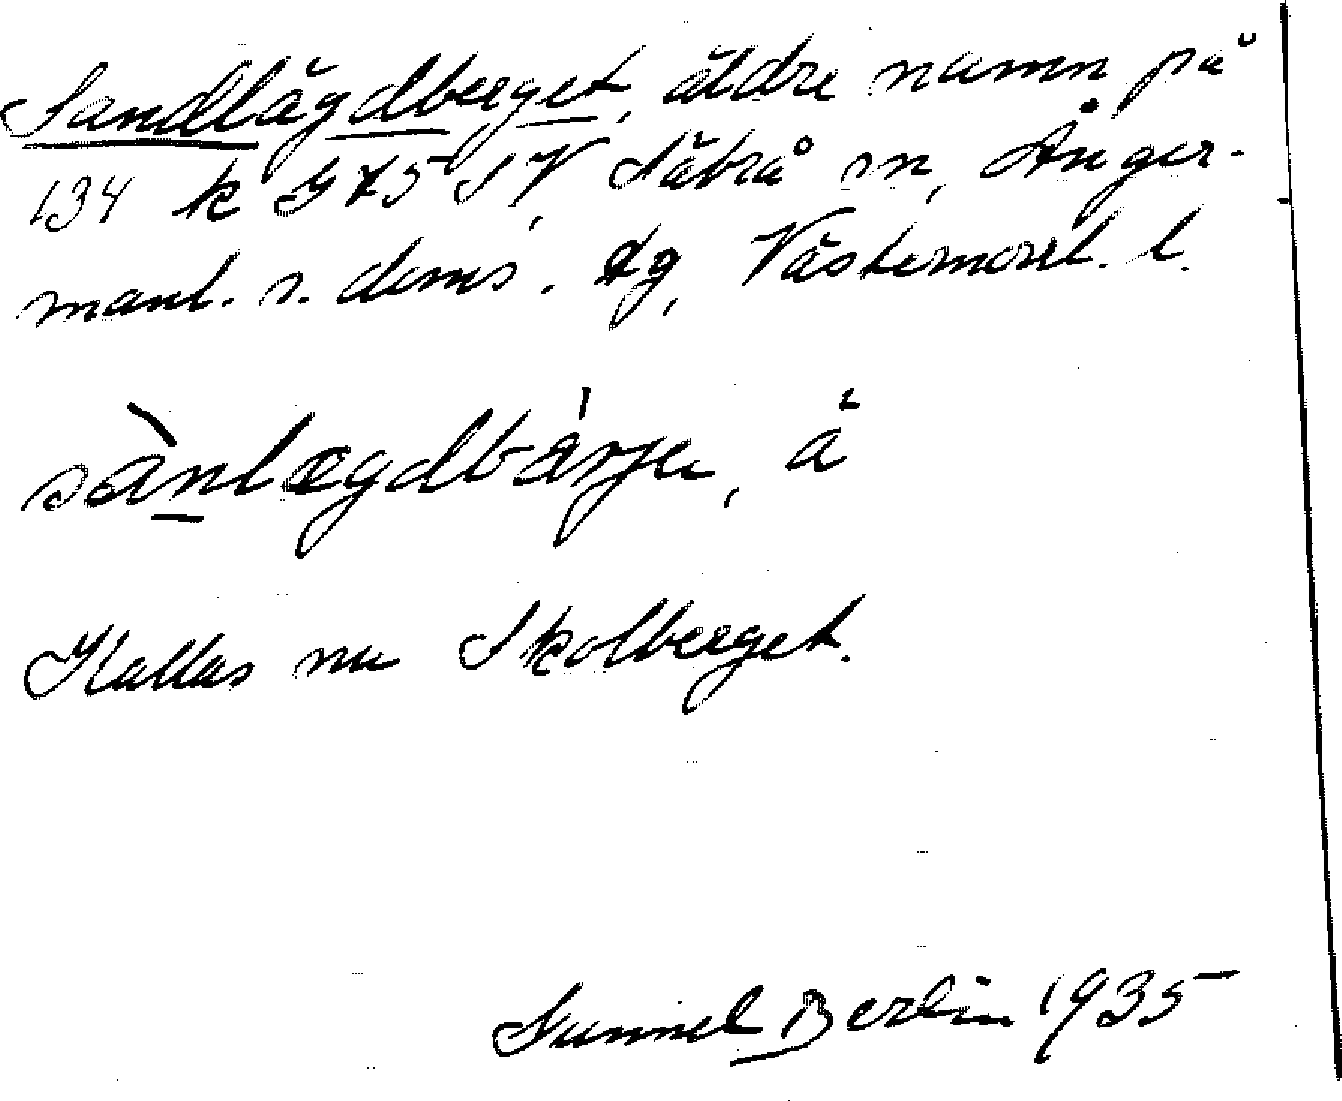 Sandlägdberget, äldre namn på
134 k G 75 SV, Säbrå sn, Ånger-
manl. s. doms. tg, Västernorrl. l.
sànlægdbárje, å
Kallas nu Skolberget.
Gunnel Berlin 1935